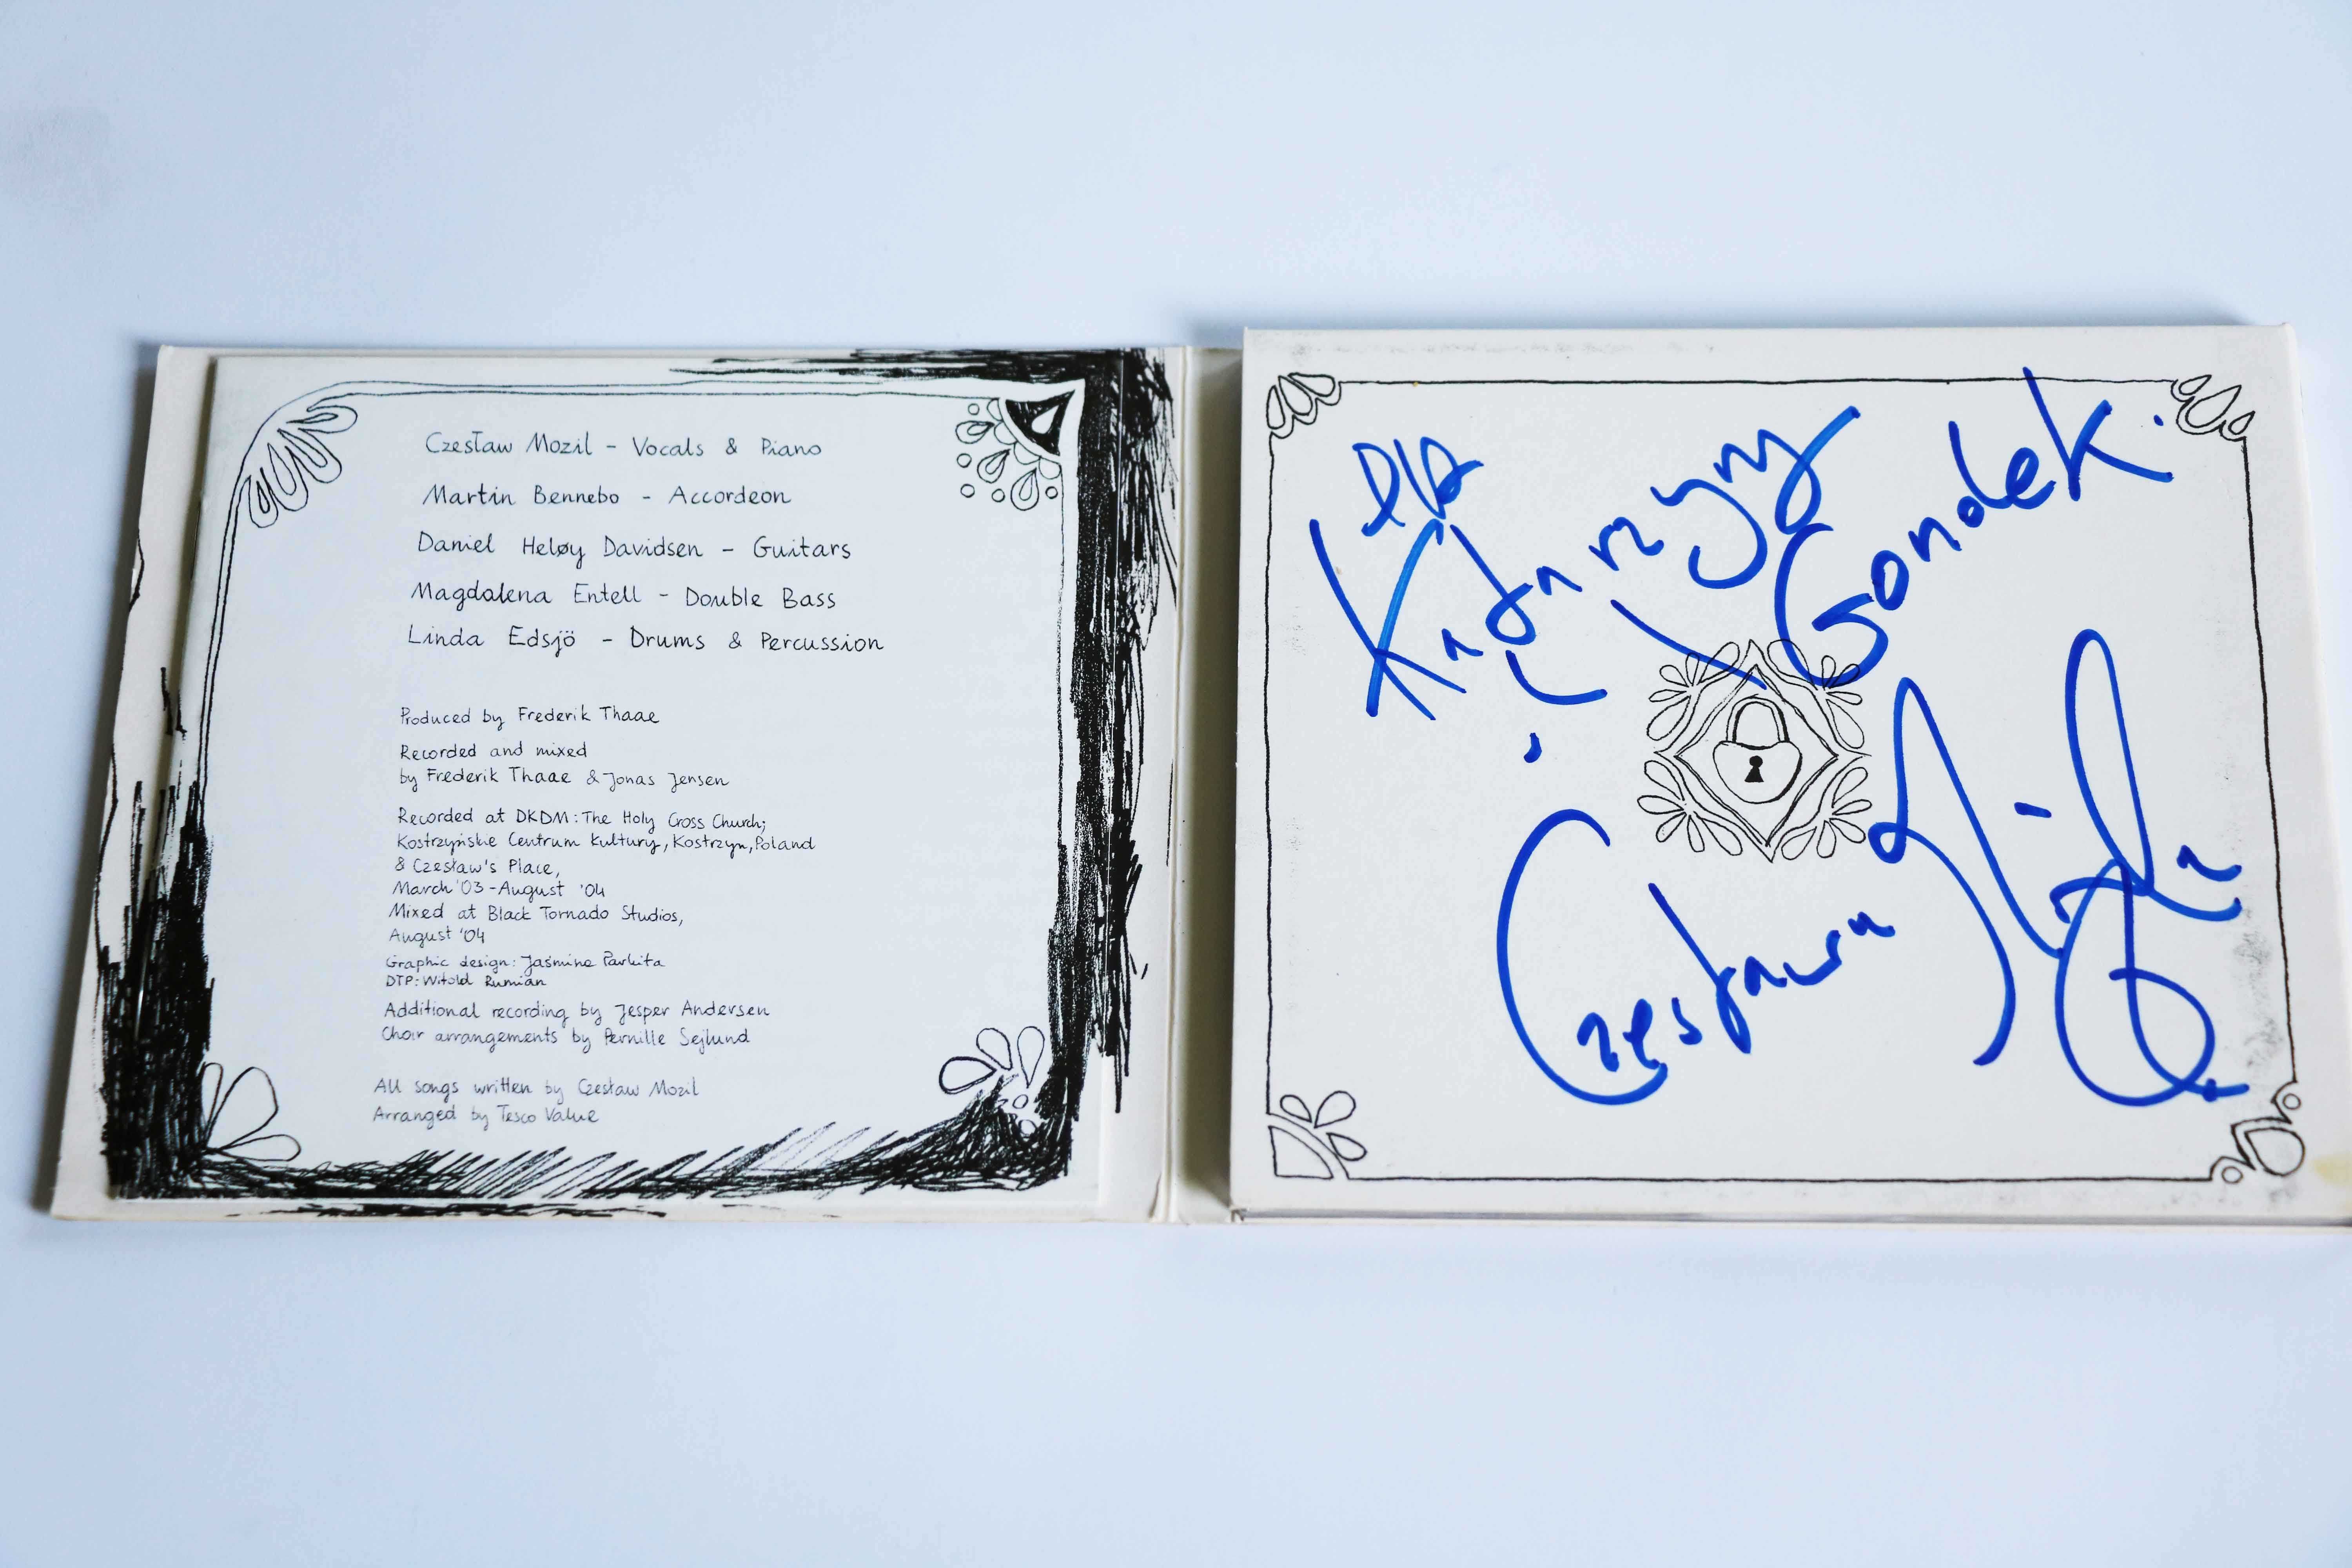 Czesław Mozil - Vocals & Piano
Martin Bennebo - Accordeon
Daniel Heløy Davidsen - Guitars
Magdalena Entell - Double Bass
Linda Edsjö - Drums & Percussion
Produced by Frederik Thaae
Recorded and mixed
by Frederik Thaae & Jonas Jensen
Recorded at DKDM: The Holy Cross Church;
Kostrzyńskie Centrum Kultury, Kostrzyn, Poland
& Czesław's Place,
March '03 - August '04
Mixed at Black Tornado Studios,
August '04
Graphic design: Jaśmina Parkita
DTP: Witold Rumian
Additional recording by Jesper Andersen
Choir arrangements by Pernille Sejlund
All songs written by Czesław Mozil
Arranged by Tesco Value
Dla
Katarzyny
Gondek.
Czesława